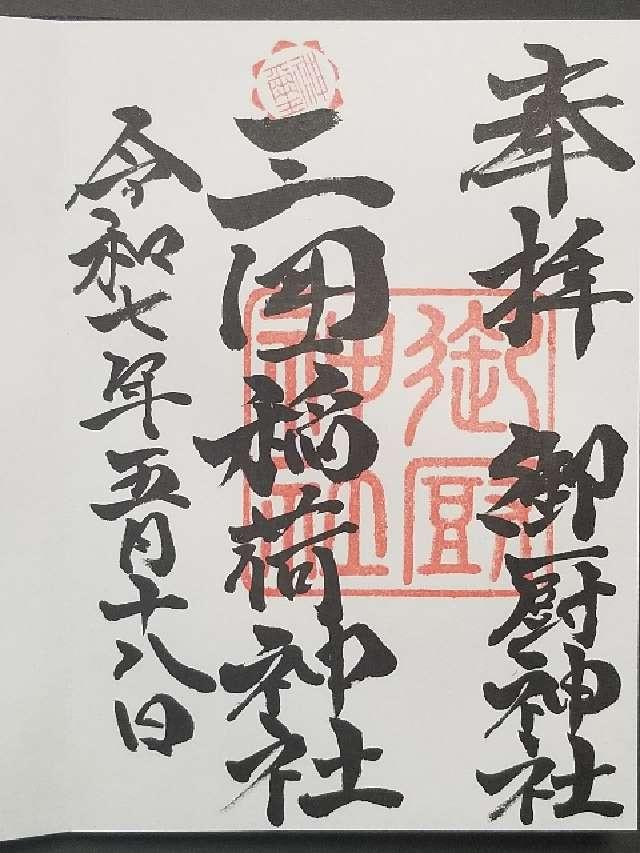 奉拝　御厨神社
三囲稲荷神社
令和七年五月十八日
御厨神社